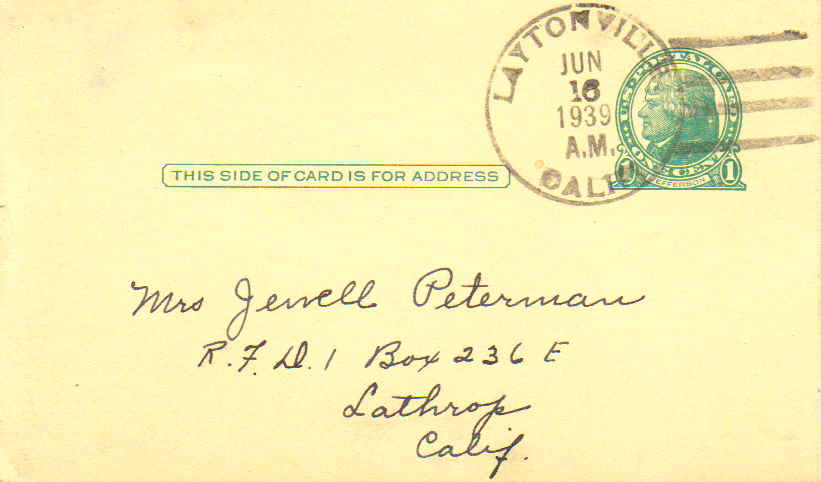 LAYTONVILLE
JUN
16
1939
A.M.
CALIF
U.S. POSTAL CARD
ONE CENT
1 JEFFERSON 1
THIS SIDE OF CARD IS FOR ADDRESS
Mrs Jewell Peterman
R.F.D. 1 Box 236 E
Lathrop
Calif.